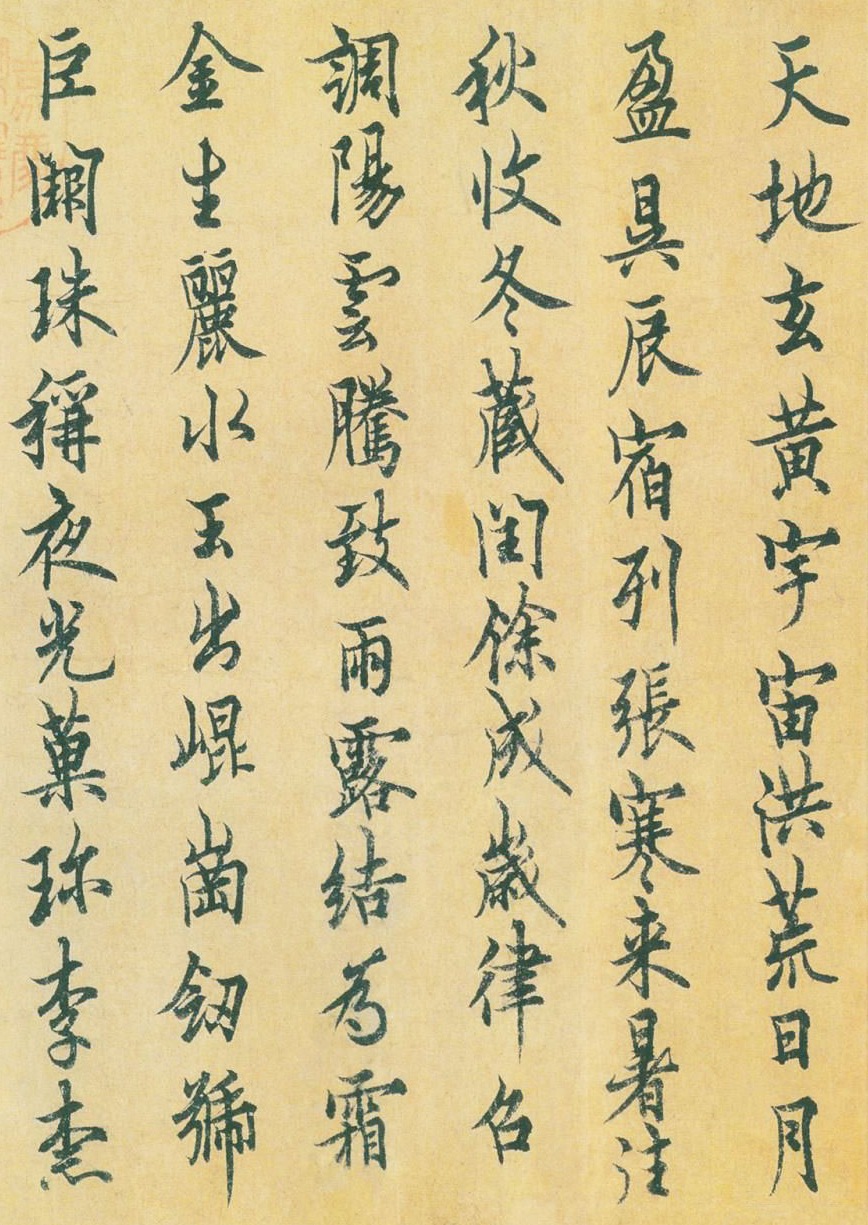 天地玄黄宇宙洪荒日月
盈昃辰宿列張寒来暑往
秋收冬藏閏餘成歲律召
調陽雲騰致雨露結為霜
金生麗水玉出崐崗釼號
巨闕珠稱夜光菓珎李柰